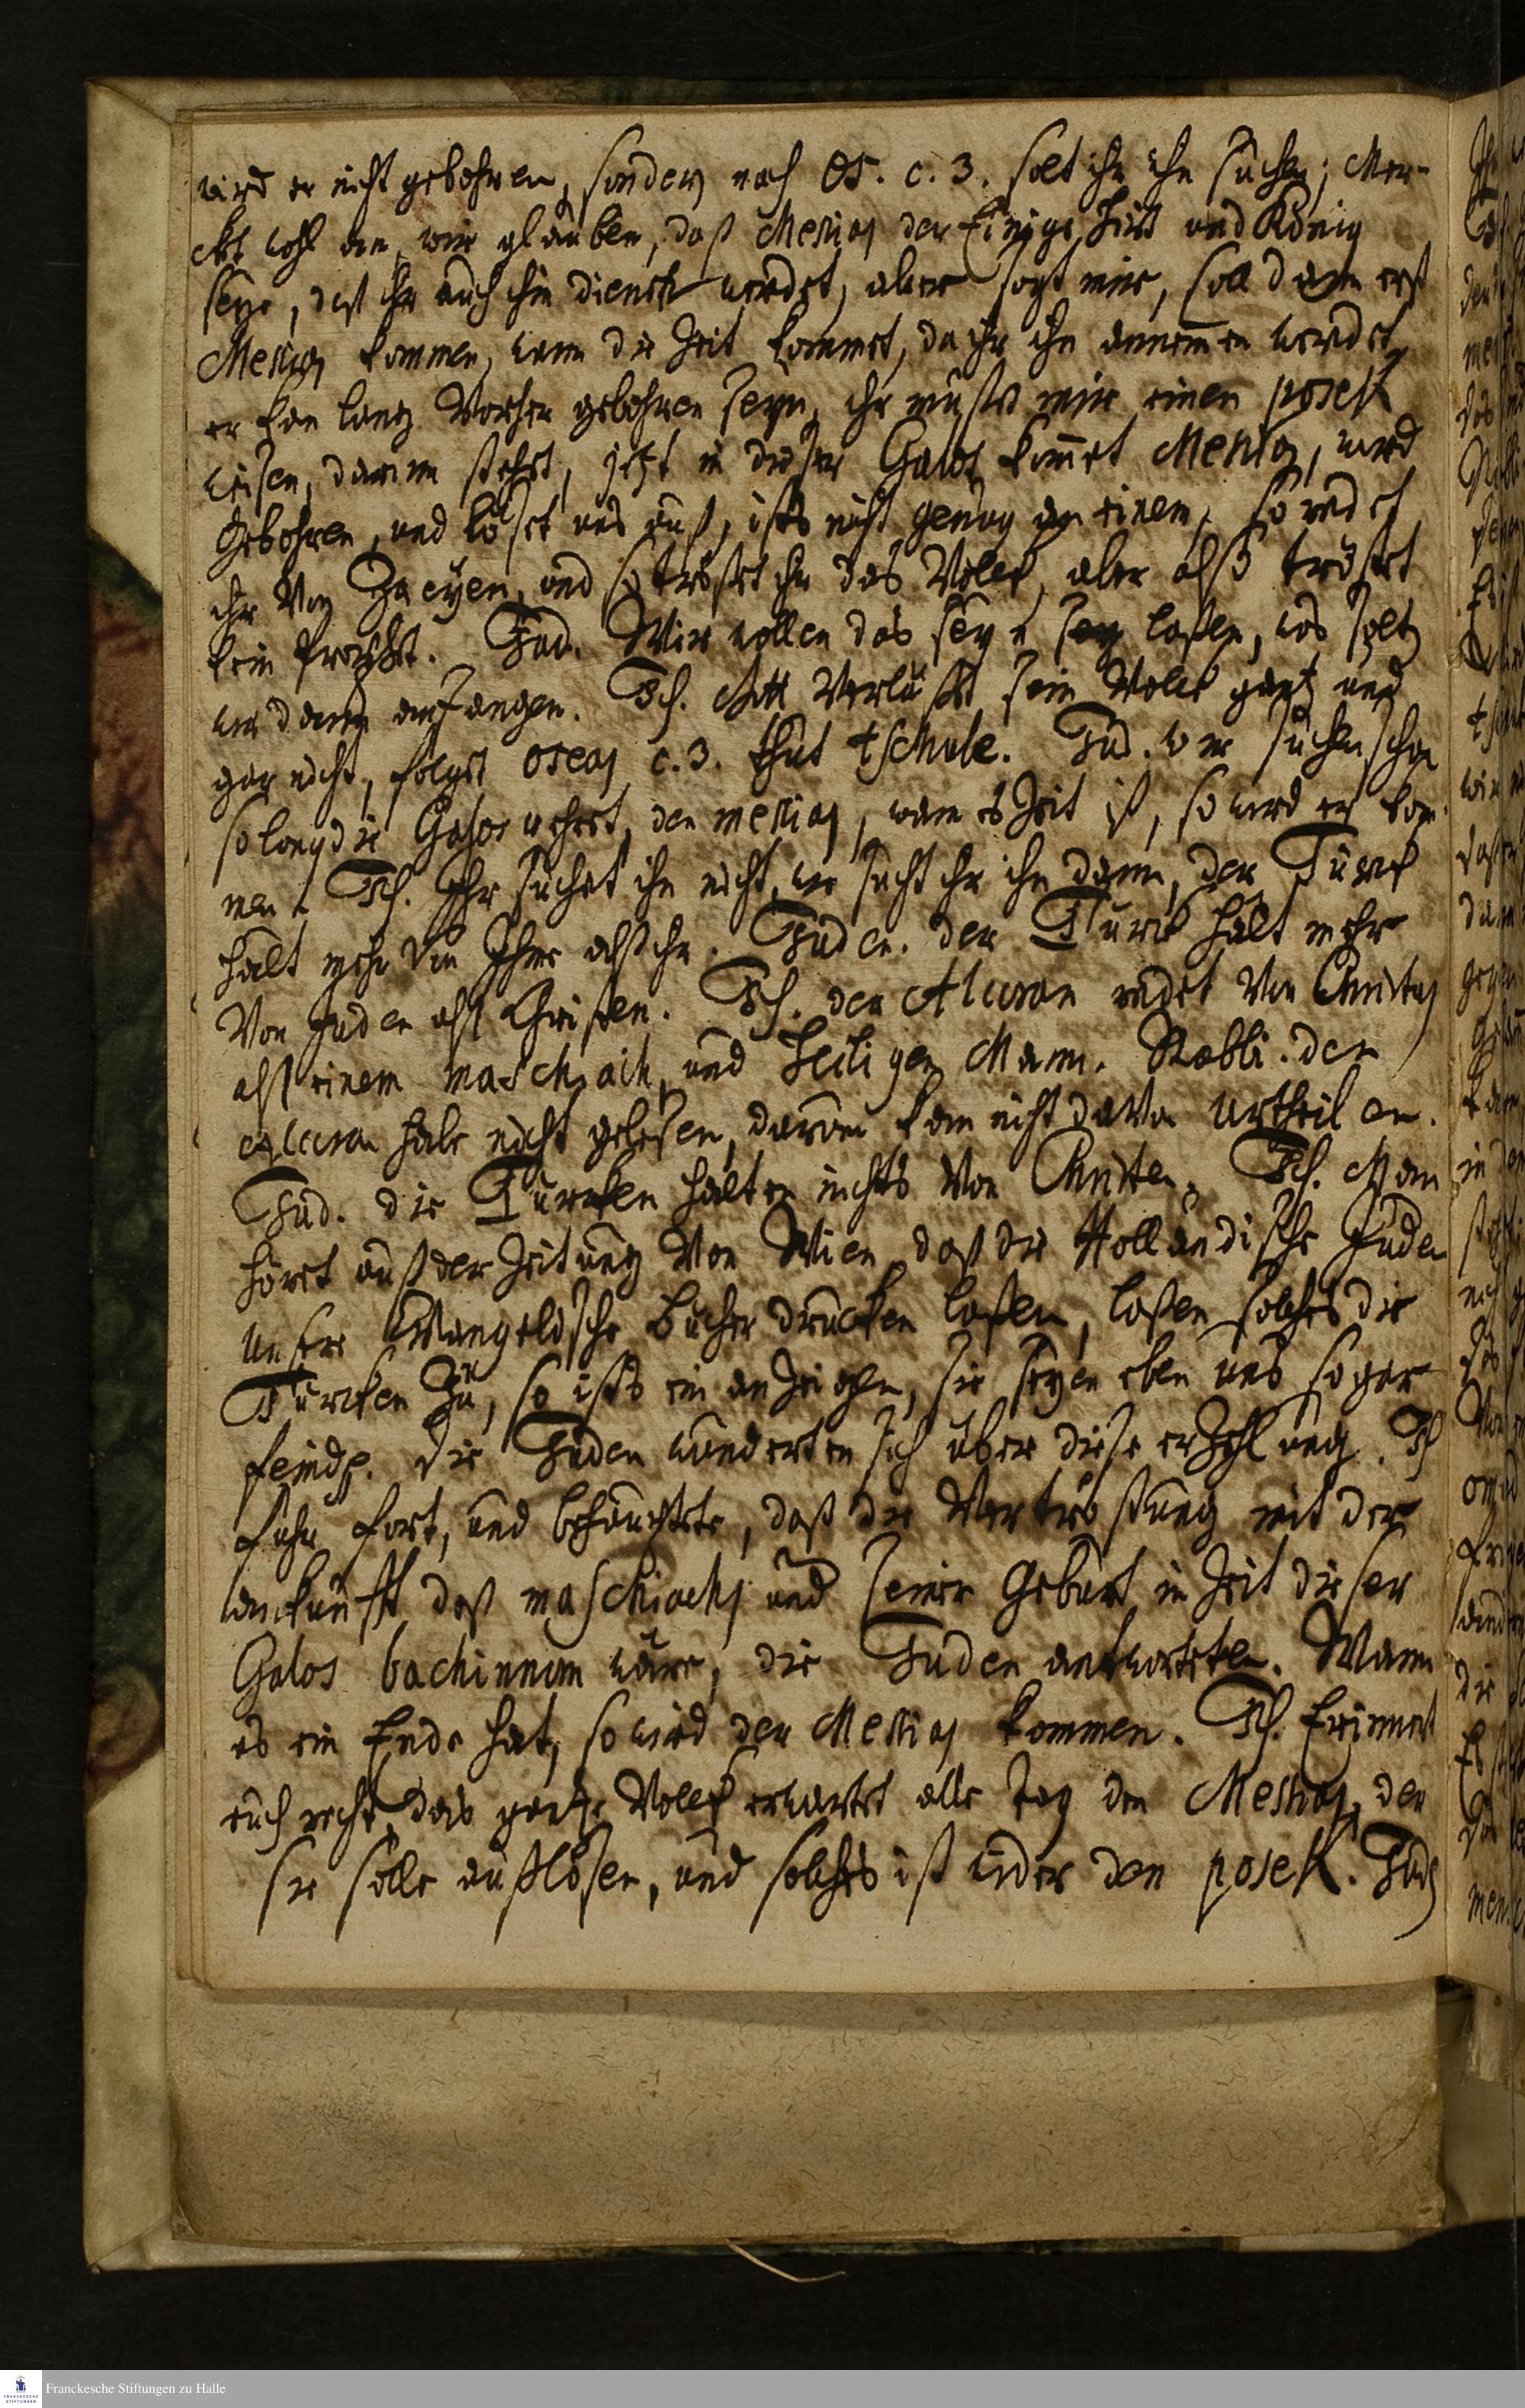 wird er nicht gebohren, sondern nach Os. c. 3. solt ihr ihn suchen; Mer-
ckt wohl an, wir glauben, daß Messias der Einige Hirt und König
seye, daß ihr auch ihm dienen werdet, aber sagt mir, soll dann erst
Messias kommen, wann die Zeit kommet, da ihr ihn annemmen werdet,
er kan lang vorher gebohren seyn, ihr müßt mir einen posek
weisen, darinn stehet, jetzt in dieser Galos kommet Messias, wird
gebohren, und löset uns auß, ists nicht genug an einem, so redet
ihr von Zweyen, und so tröstet ihr das Volck, aber also tröstet
kein Prophet. Jud. Wir wollen das seyn laßen, was solten
wir dann anfangen. Ich. Gott verläßt sein Volck gantz und
gar nicht, folget Oseas c. 3. thut tschufe. Jud. wir suchen schon
so lang die Galos wehret, den Messias, wann es Zeit ist, so wird er kom-
men. Ich. Ihr suchet ihn nicht, wo sucht ihr ihn dann, der Türck
halt mehr von Ihme alß ihr. Juden. der Türck halt mehr
von Juden alß Christen. Ich. der Alcoran redet von Christus
alß einem maschiach, und Heiligen Mann. Rabbi. den
Alcoran habe nicht gelesen, darum kan nicht davon urtheilen.
Jud. die Türcken halten nichts von Christen. Ich. Man
höret auß der Zeitung von Wien, daß die Holländische Juden
unsere Evangelische Bücher drucken laßen, laßen solches die
Türcken Zu, so ists ein anzeigen, sie seyen eben uns so gar
feind. die Juden wunderten sich über diese erzehlung. Ich
fuhr fort, und behauptete, daß die Vertröstung mit der
ankunfft deß maschiachs und seiner Geburt in Zeit dieser
Galos bachinnom wäre, die Juden antworteten. Wann
es ein Ende hat, so wird der Messias kommen. Ich. Erinnert
euch recht, das gantze Volck erwartet alle Tag den Messias, der
sie solle außlösen, und solches ist wider den posek. Jud.
Franckesche Stiftungen zu Halle